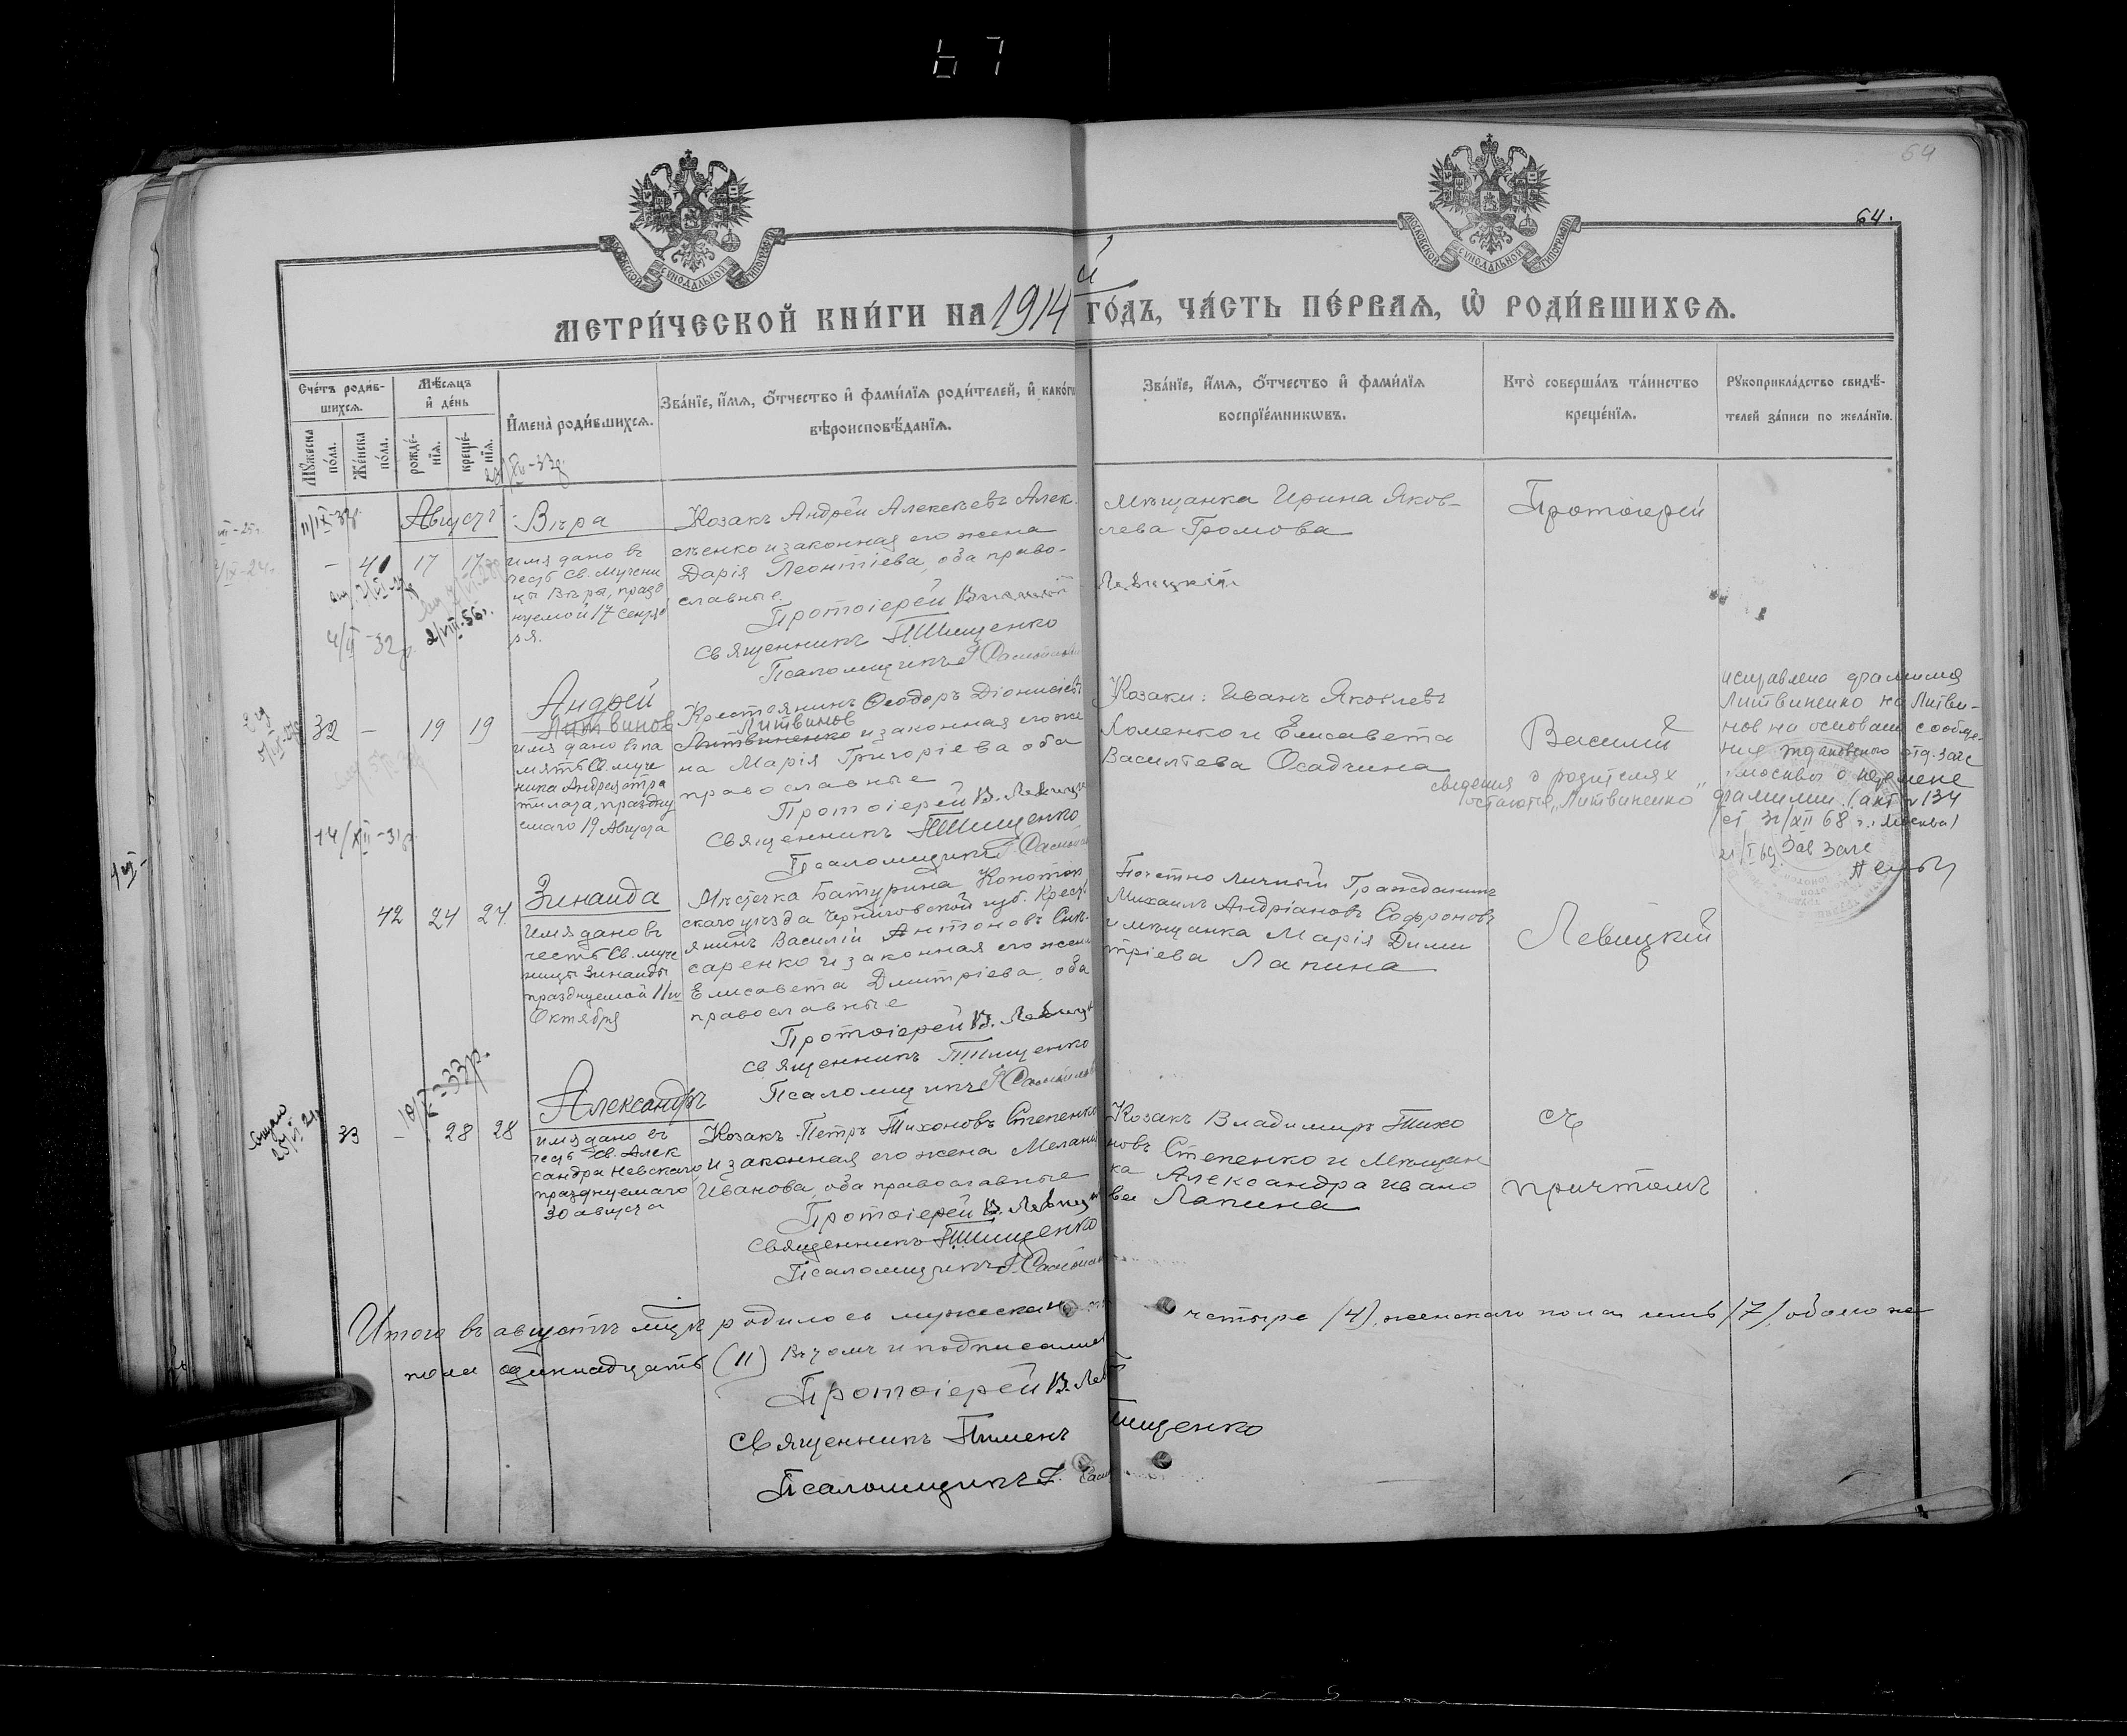 67
64
64.
МОСКОВСКОЙ СѴНОДАЛЬНОЙ ТИПОГРАФІИ
МОСКОВСКОЙ СѴНОДАЛЬНОЙ ТИПОГРАФІИ
МЕТРИ́ЧЕСКОЙ КНИ́ГИ НА 1914й ГО́ДЪ, ЧА́СТЬ ПЕ́РВАѦ, Ѽ РОДИ́ВШИХСѦ.
Сче́тъ роди́в-
шихсѧ.
Мꙋ́жеска
по́ла.
Же́нска
по́ла.
Мѣ́сѧцъ
и҆ де́нь
рожде́-
нїѧ.
креще́-
нїѧ.
И҆мена̀ роди́вшихсѧ.
Зва́нїе, и҆́мѧ, ѻ҆́тчество и҆ фами́лїѧ роди́телей, и҆ како́гѡ
вѣроисповѣ́данїѧ.
Зва́нїе, и҆́мѧ, ѻ҆́тчество и҆ фами́лїѧ
воспрїе́мникѡвъ.
Кто̀ соверша́лъ та́инство
креще́нїѧ.
Рꙋкоприкла́дство свидѣ́-
телей за́писи по жела́нїю.
Августъ
- 41 17 17
Вѣра
имя дано въ
честь Св. мучени
цы Вѣры, празд
нуемой 17 сентяб
ря.
Козакъ Андрей Алексѣевъ Алек
сѣенко и законная его жена
Дарія Леонтіева, оба право-
славные.
Протоіерей В. Левицкій.
Священникъ П Тищенко
Псаломщикъ
Мѣщанка Ирина Яков-
лева Громова
Протоіерей
4/II-32г.
2/VIII-56г.
32 - 19 19
Андрей
Литвинов
имя дано въ па
мять Св. муче
ника Андрея стра
тилата, праздну
емаго 19 Августа
Крестьянинъ Ѳеодоръ Діонисіевъ
Литвинов
Литвиненко и законная его же
на Марія Григоріева оба
православные
Протоіерей В. Левицк
Священникъ П Тищенко
Псаломщикъ
Козаки: Иванъ Яковлевъ
Хоменко и Елисавета
Васильева Осадчина
Василій
сведения о родителях
остаются „Литвиненко"
исправлено фамилия
Литвиненко на Литви-
нов на основани сообще-
ние Ждановского отд. загс
г. москвы о перемене
фамилии (акт N 134
от 31/XII 68 г. г. Москва)
21/I 69 Зав Загс
14/XII-31г.
42 24 24
Зинаида
имя дано въ
честь Св. муче
ницы Зинаиды
празднуемой 11го
Октября
Мѣстечка Батурина Конотоп
скаго уѣзда Черниговской губ. Крест
янинъ Василій Антоновъ Слю-
саренко и законная его жена
Елисавета Дмитріева, оба
православные
Протоіерей В. Левицк
Священникъ П Тищенко
Псаломщикъ
Почетно Личный Гражданинъ
Михаилъ Андріановъ Софроновъ
и мѣщанка Марія Дими
тріева Лапина
Левицкій
10/X-33г.
33 - 28 28
Александръ
имя дано въ
честь Св. Алек
сандра Невскаго
празднуемаго
30 августа
Козакъ Петръ Тихоновъ Степенко
и законная его жена Меланія
Иванова, оба православные
Протоіерей В. Левицк
Священникъ П Тищенко
Псаломщикъ
Козакъ Владимиръ Тихо
новъ Степенко и Мѣщан
ка Александра Ивано
ва Лапина
съ
причтомъ
Итого въ августѣ мцѣ родилось мужеска четыре (4), женскаго пола семь (7), обоего же
пола одиннадцать (11) въ чемъ и подписались
Протоіерей В. Лев
Священникъ Пименъ Тищенко
Псаломщикъ